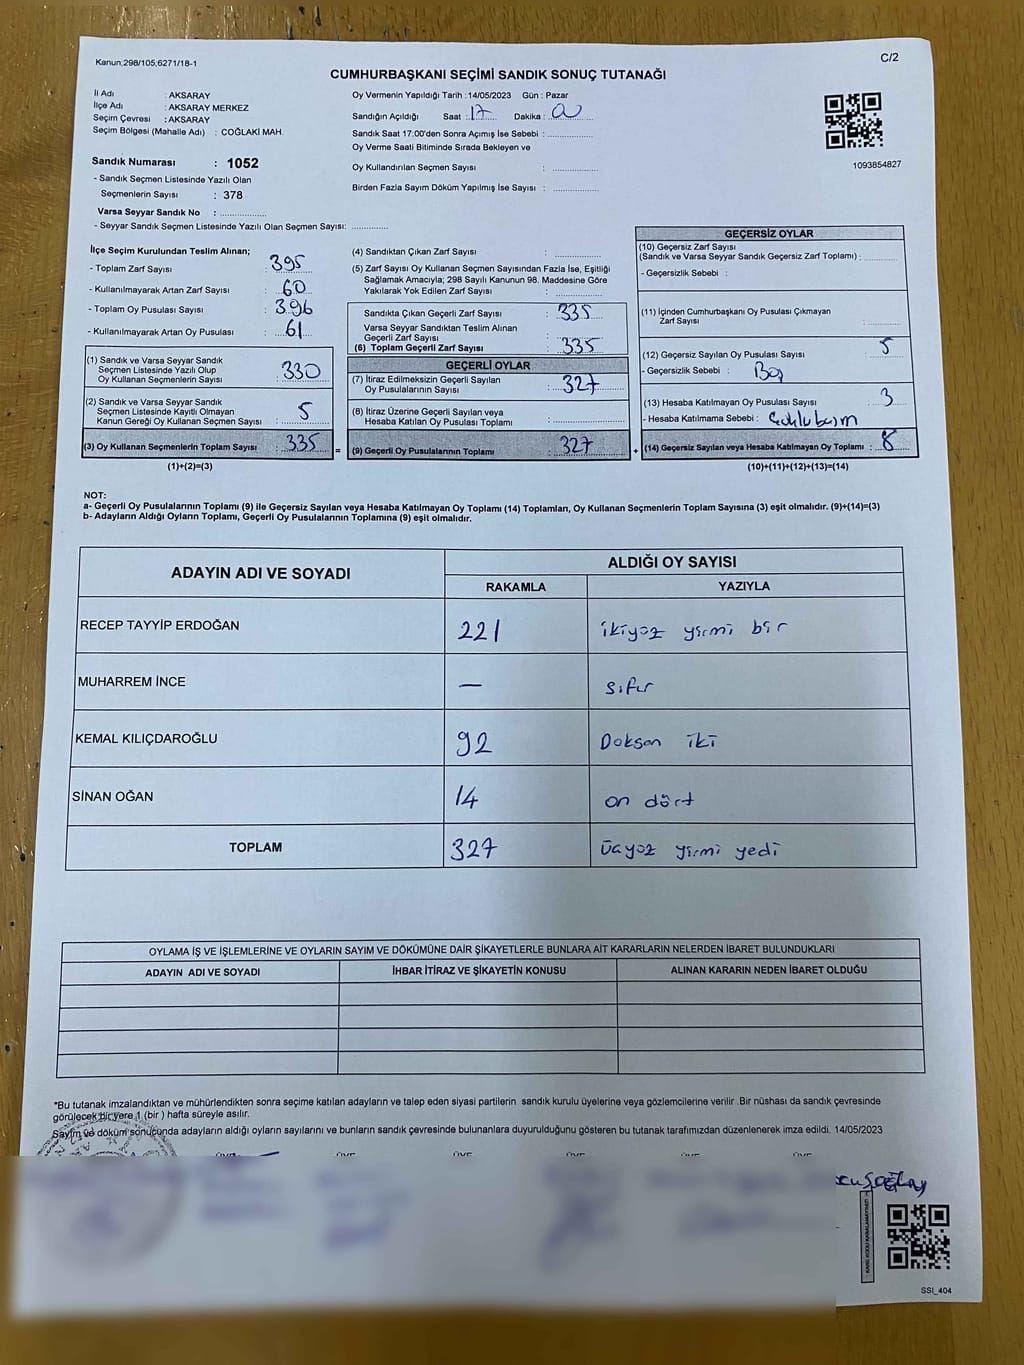 Kanun;298/105;6271/18-1
C/2
CUMHURBAŞKANI SEÇİMİ SANDIK SONUÇ TUTANAĞI
İl Adı : AKSARAY
İlçe Adı : AKSARAY MERKEZ
Seçim Çevresi : AKSARAY
Seçim Bölgesi (Mahalle Adı) : COĞLAKİ MAH.
Sandık Numarası : 1052
- Sandık Seçmen Listesinde Yazılı Olan
Seçmenlerin Sayısı : 378
Varsa Seyyar Sandık No : ....................
- Seyyar Sandık Seçmen Listesinde Yazılı Olan Seçmen Sayısı: ............
Oy Vermenin Yapıldığı Tarih :14/05/2023 Gün : Pazar
Sandığın Açıldığı Saat : 17 Dakika :
Sandık Saat 17:00'den Sonra Açımış İse Sebebi : ...............
Oy Verme Saati Bitiminde Sırada Bekleyen ve
Oy Kullandırılan Seçmen Sayısı : ...............
Birden Fazla Sayım Döküm Yapılmış İse Sayısı : ...............
1093854827
İlçe Seçim Kurulundan Teslim Alınan;
- Toplam Zarf Sayısı : 395
- Kullanılmayarak Artan Zarf Sayısı : 60
- Toplam Oy Pusulası Sayısı : 396
- Kullanılmayarak Artan Oy Pusulası : 61
(1) Sandık ve Varsa Seyyar Sandık
Seçmen Listesinde Yazılı Olup
Oy Kullanan Seçmenlerin Sayısı : 330
(2) Sandık ve Varsa Seyyar Sandık
Seçmen Listesinde Kayıtlı Olmayan
Kanun Gereği Oy Kullanan Seçmen Sayısı : 5
(3) Oy Kullanan Seçmenlerin Toplam Sayısı : 335
(1)+(2)=(3)
(4) Sandıktan Çıkan Zarf Sayısı : ...............
(5) Zarf Sayısı Oy Kullanan Seçmen Sayısından Fazla İse, Eşitliği
Sağlamak Amacıyla; 298 Sayılı Kanunun 98. Maddesine Göre
Yakılarak Yok Edilen Zarf Sayısı : ...............
Sandıkta Çıkan Geçerli Zarf Sayısı : 335
Varsa Seyyar Sandıktan Teslim Alınan
Geçerli Zarf Sayısı :
(6) Toplam Geçerli Zarf Sayısı : 335
GEÇERLİ OYLAR
(7) İtiraz Edilmeksizin Geçerli Sayılan
Oy Pusulalarının Sayısı : 327
(8) İtiraz Üzerine Geçerli Sayılan veya
Hesaba Katılan Oy Pusulası Toplamı : ...............
= (9) Geçerli Oy Pusulalarının Toplamı : 327 +
GEÇERSİZ OYLAR
(10) Geçersiz Zarf Sayısı
(Sandık ve Varsa Seyyar Sandık Geçersiz Zarf Toplamı) : ............
- Geçersizlik Sebebi :
(11) İçinden Cumhurbaşkanı Oy Pusulası Çıkmayan
Zarf Sayısı : ............
(12) Geçersiz Sayılan Oy Pusulası Sayısı : 5
- Geçersizlik Sebebi :
(13) Hesaba Katılmayan Oy Pusulası Sayısı : 3
- Hesaba Katılmama Sebebi :
(14) Geçersiz Sayılan veya Hesaba Katılmayan Oy Toplamı : 8
(10)+(11)+(12)+(13)=(14)
NOT:
a- Geçerli Oy Pusulalarının Toplamı (9) ile Geçersiz Sayılan veya Hesaba Katılmayan Oy Toplamı (14) Toplamları, Oy Kullanan Seçmenlerin Toplam Sayısına (3) eşit olmalıdır. (9)+(14)=(3)
b- Adayların Aldığı Oyların Toplamı, Geçerli Oy Pusulalarının Toplamına (9) eşit olmalıdır.
ADAYIN ADI VE SOYADI
ALDIĞI OY SAYISI
RAKAMLA YAZIYLA
RECEP TAYYİP ERDOĞAN 221 ikiyüz yirmi bir
MUHARREM İNCE — sıfır
KEMAL KILIÇDAROĞLU 92 Doksan iki
SİNAN OĞAN 14 on dört
TOPLAM 327 üçyüz yirmi yedi
OYLAMA İŞ VE İŞLEMLERİNE VE OYLARIN SAYIM VE DÖKÜMÜNE DAİR ŞİKAYETLERLE BUNLARA AİT KARARLARIN NELERDEN İBARET BULUNDUKLARI
ADAYIN ADI VE SOYADI İHBAR İTİRAZ VE ŞİKAYETİN KONUSU ALINAN KARARIN NEDEN İBARET OLDUĞU
*Bu tutanak imzalandıktan ve mühürlendikten sonra seçime katılan adayların ve talep eden siyasi partilerin sandık kurulu üyelerine veya gözlemcilerine verilir .Bir nüshası da sandık çevresinde
görülecek bir yere 1 (bir ) hafta süreyle asılır.
Sayım ve döküm sonucunda adayların aldığı oyların sayılarını ve bunların sandık çevresinde bulunanlara duyurulduğunu gösteren bu tutanak tarafımızdan düzenlenerek imza edildi. 14/05/2023
SSI_404